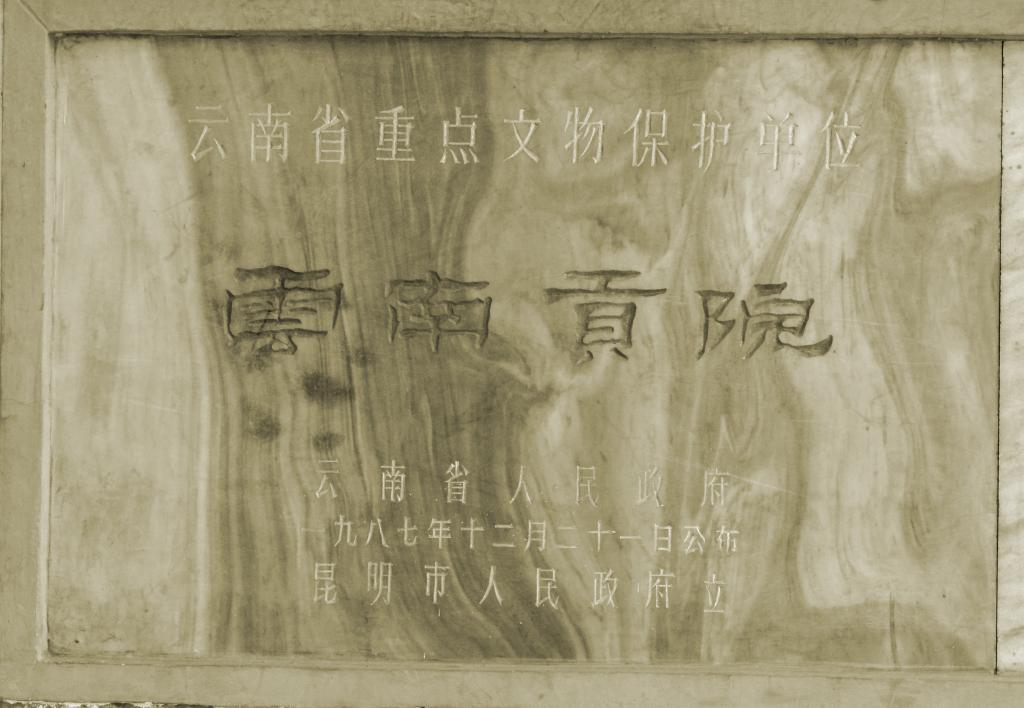 云南省重点文物保护单位
雲南貢院
云南省人民政府
一九八七年十二月二十一日公布
昆明市人民政府立